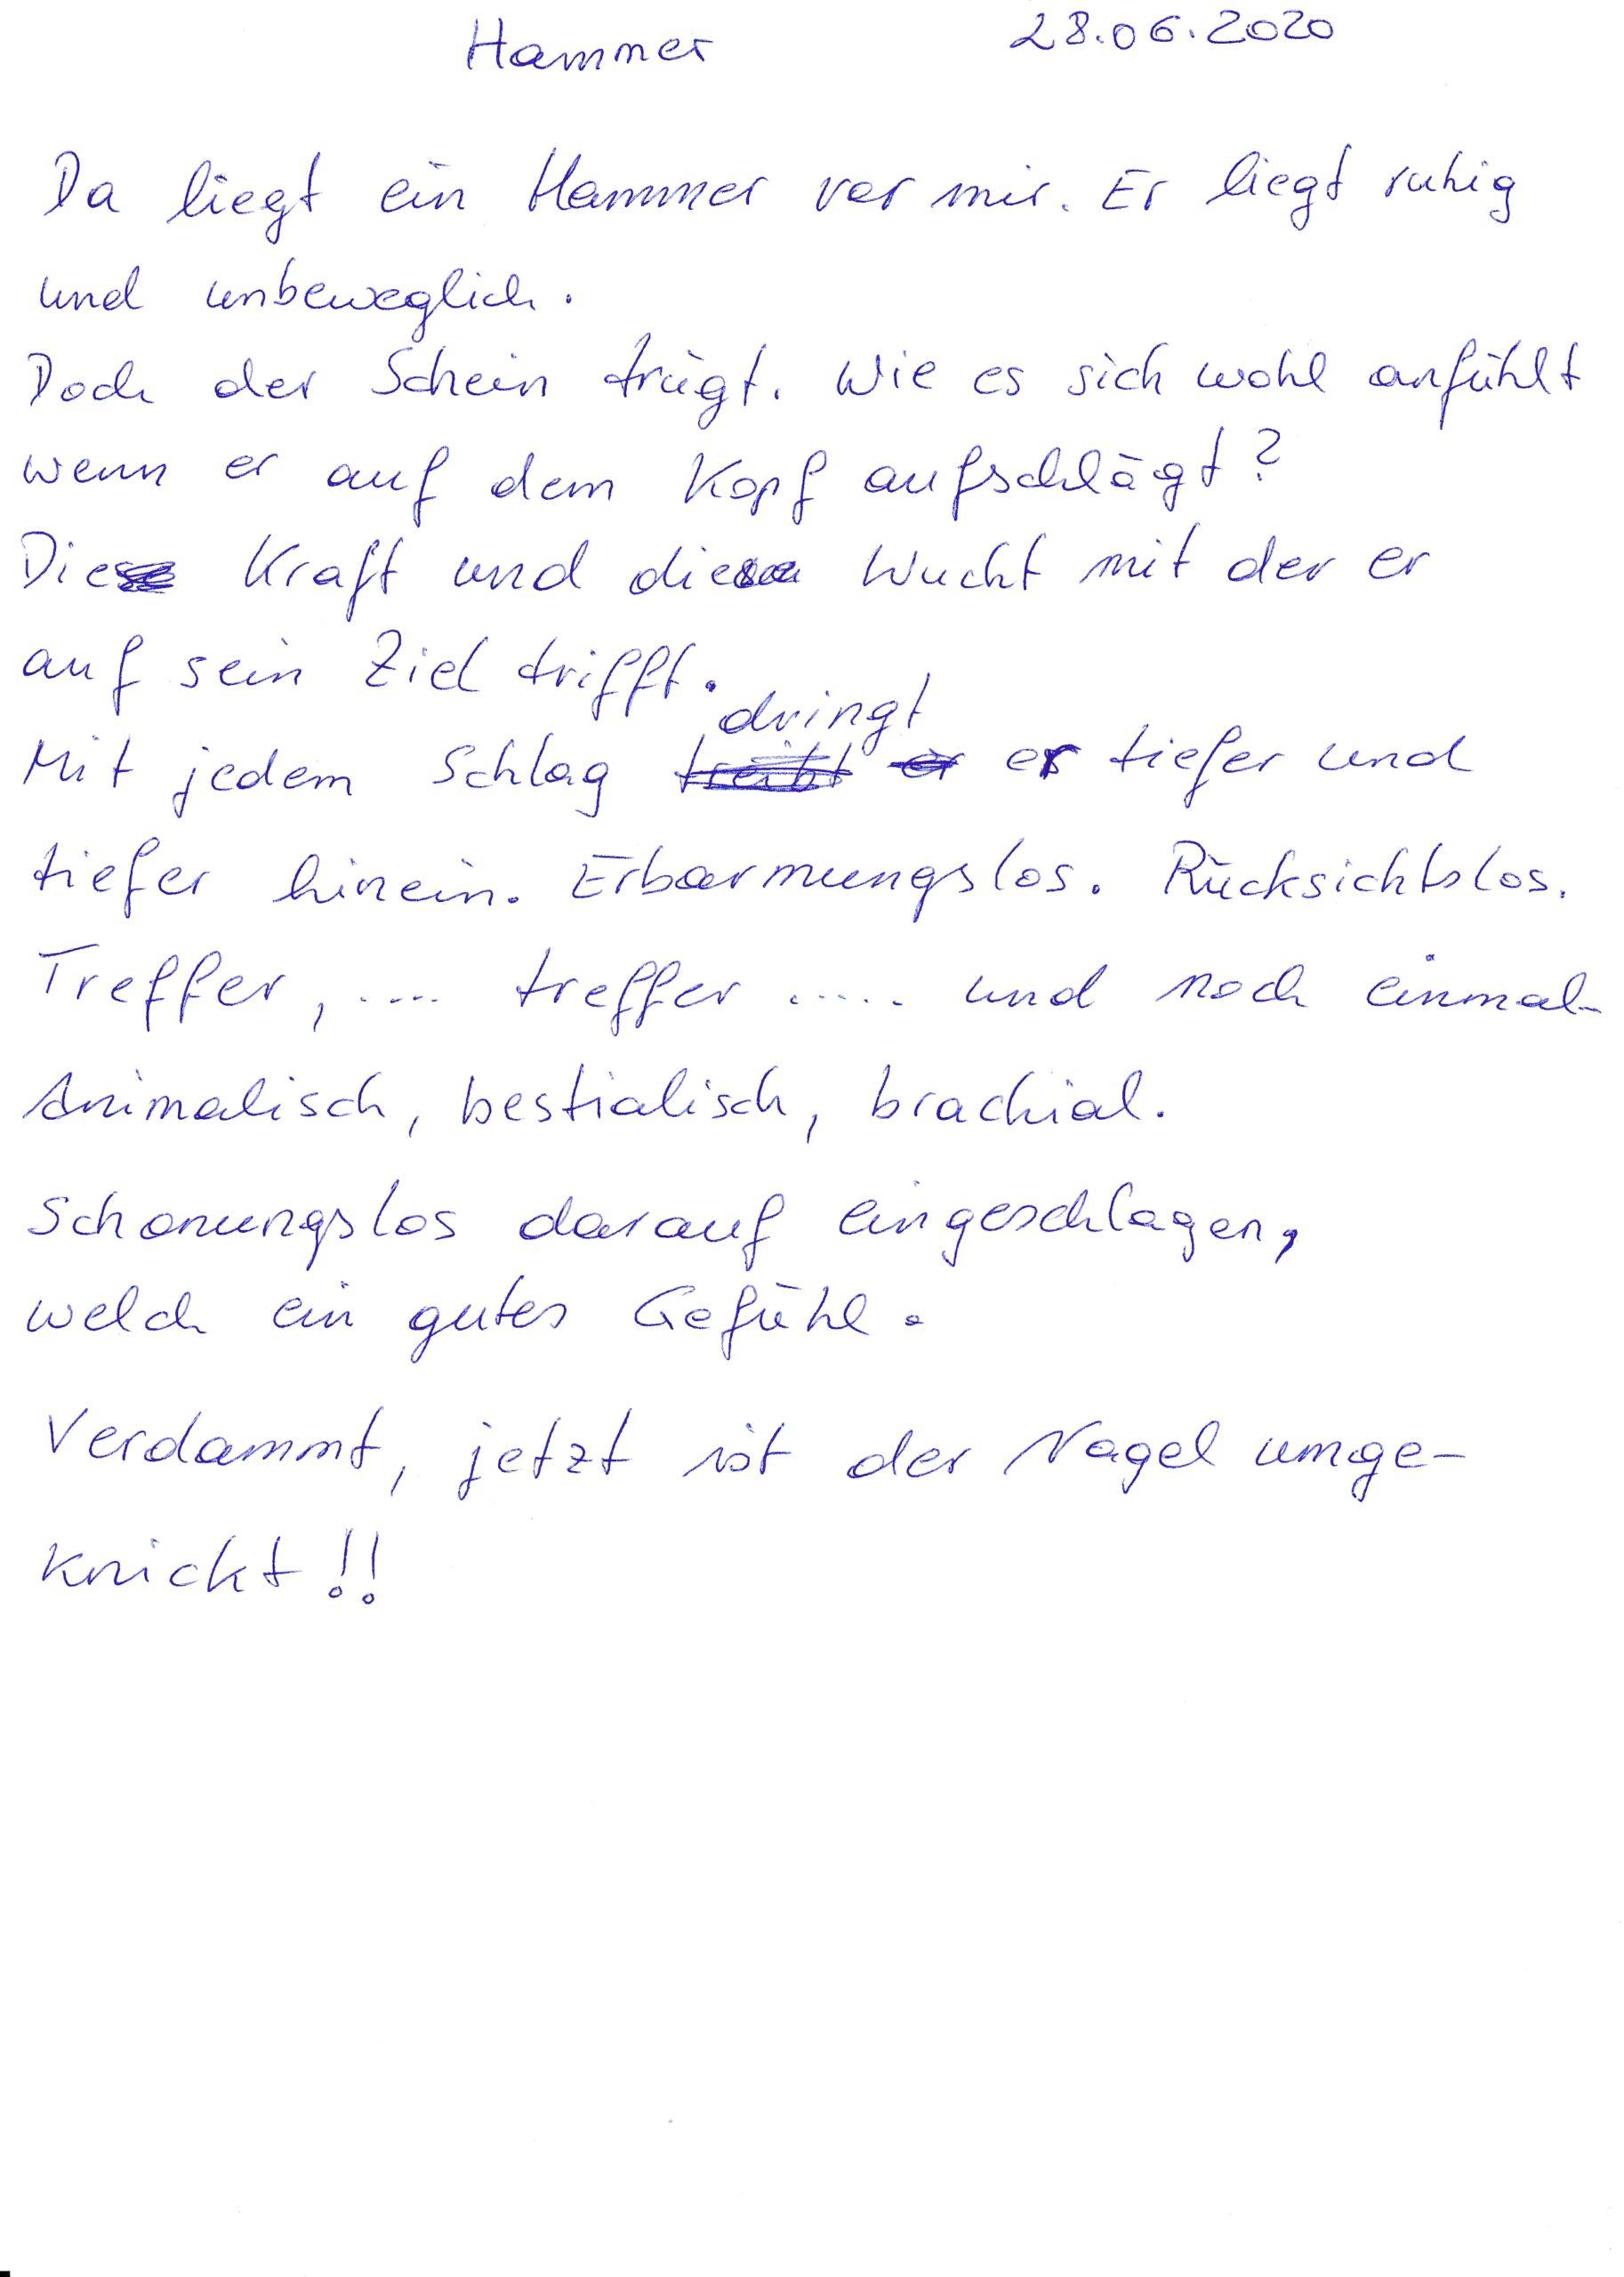 Hammer 28.06.2020
Da liegt ein Hammer vor mir. Er liegt ruhig
und unbeweglich.
Doch der Schein trügt. Wie es sich wohl anfühlt
wenn er auf dem Kopf aufschlägt?
Diese Kraft und diese Wucht mit der er
auf sein Ziel trifft.
dringt
Mit jedem Schlag treibt er er tiefer und
tiefer hinein. Erbarmungslos. Rücksichtslos.
Treffer, .... treffer ..... und noch einmal.
Animalisch, bestialisch, brachial.
Schonungslos darauf eingeschlagen,
welch ein gutes Gefühl.
Verdammt, jetzt ist der Nagel umge-
knickt!!